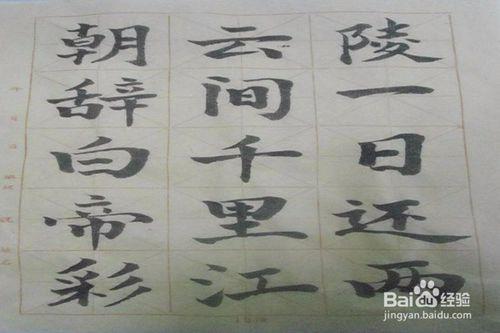 朝辞白帝彩
云间千里江
陵一日还两
Bai 经验
jingyan.baidu.com